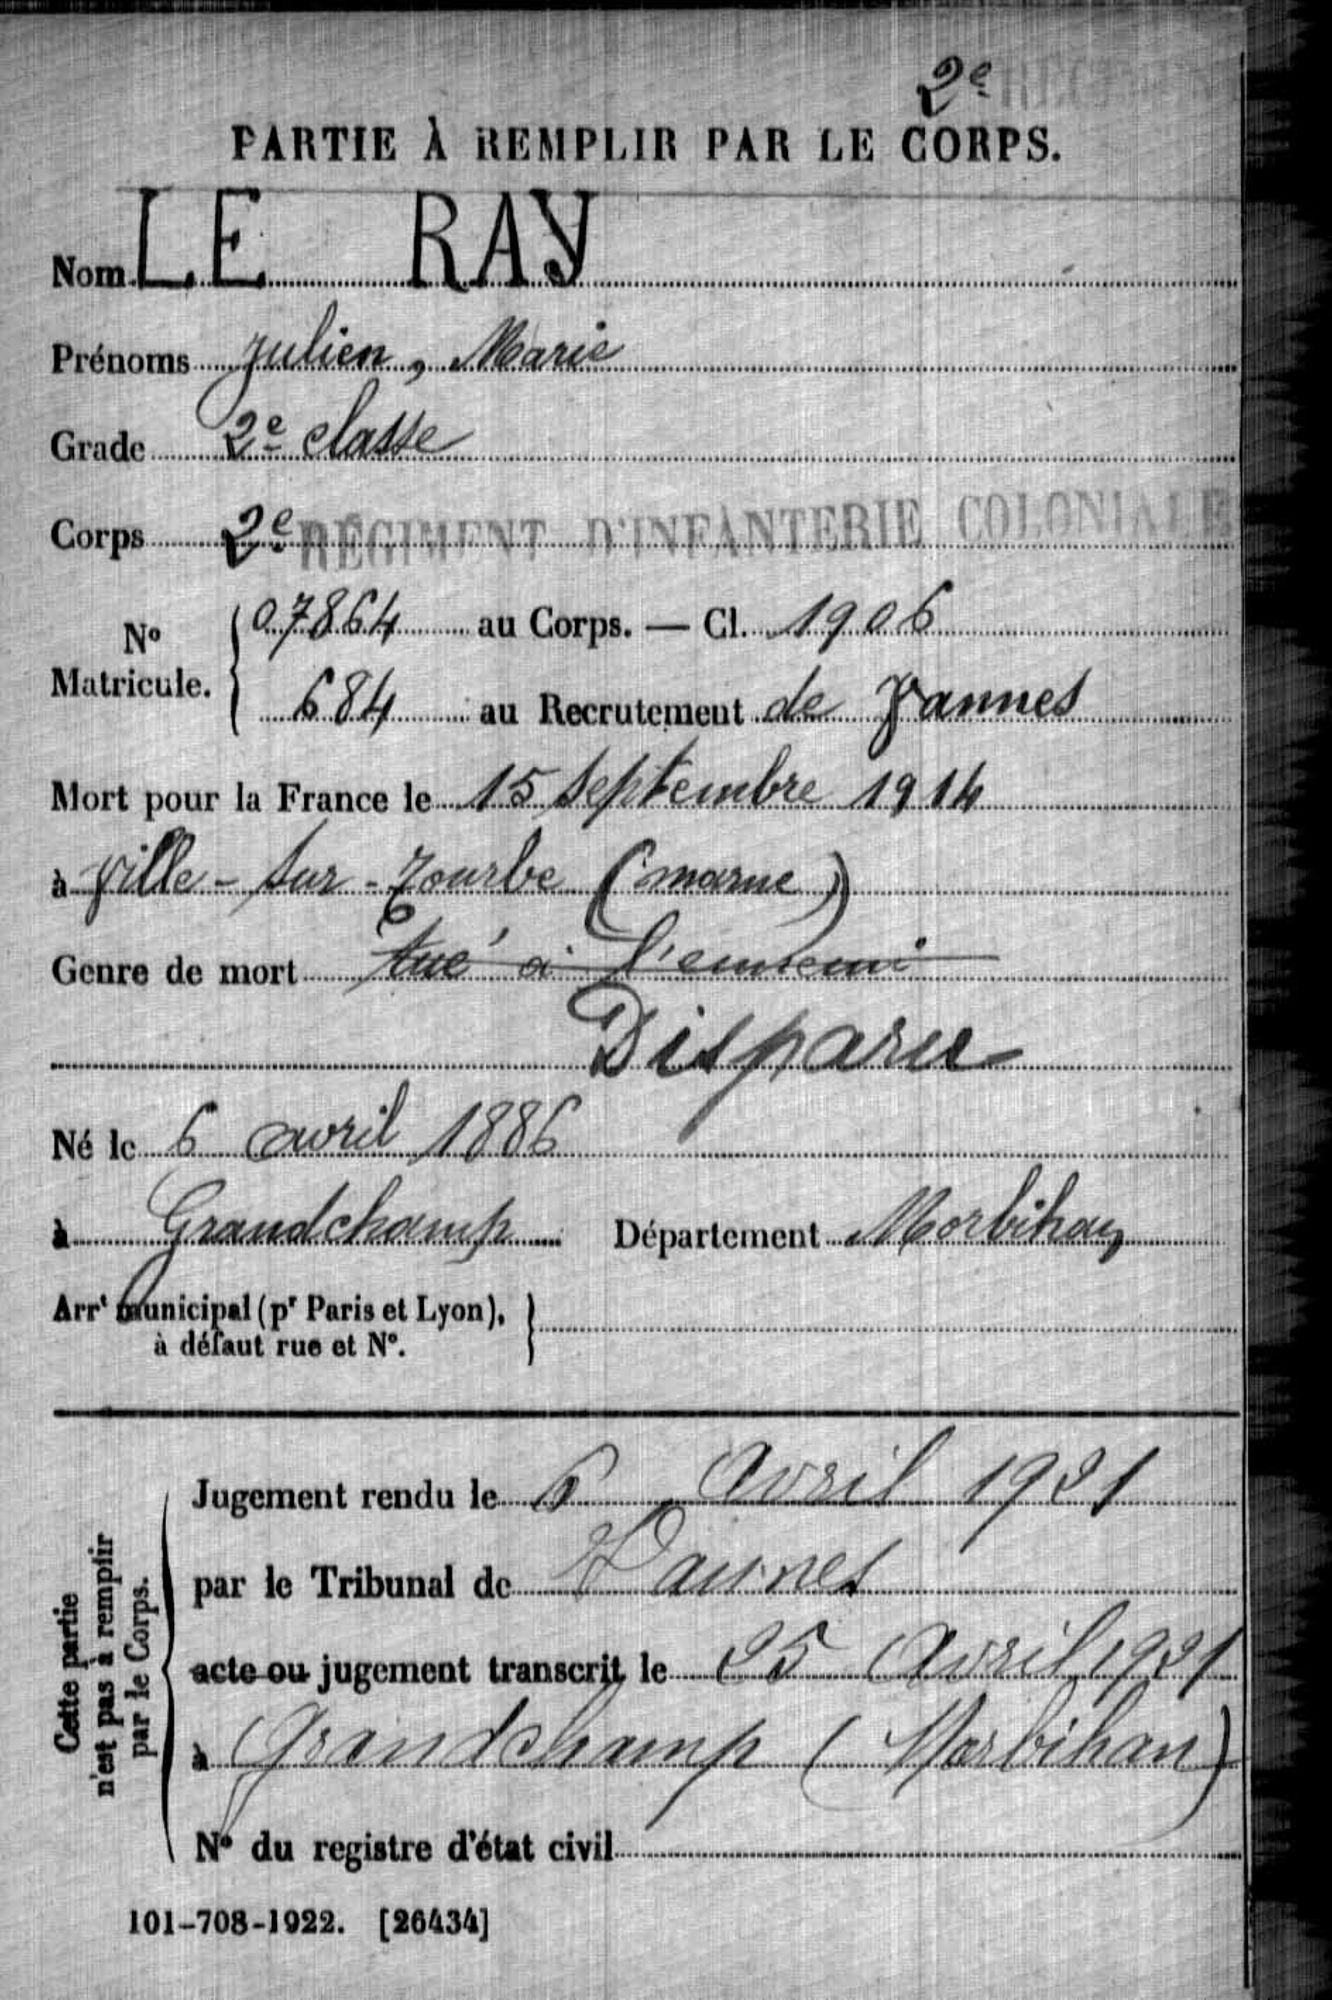 2e RÉGIMENT
PARTIE À REMPLIR PAR LE CORPS.
Nom LE RAY
Prénoms Julien, Marie
Grade 2e classe
Corps 2e RÉGIMENT D'INFANTERIE COLONIALE
No Matricule. { 07864 au Corps. — Cl. 1906
684 au Recrutement de Vannes
Mort pour la France le 15 septembre 1914
à Ville-sur-Tourbe (marne)
Genre de mort tué à l'ennemi
Disparu
Né le 6 avril 1886
à Grandchamp Département Morbihan
Arrt municipal (pr Paris et Lyon), }
à défaut rue et No.
Cette partie
n'est pas à remplir
par le Corps.
Jugement rendu le 6 Avril 1921
par le Tribunal de Vannes
acte ou jugement transcrit le 25 Avril 1921
à Grandchamp (Morbihan)
No du registre d'état civil
101-708-1922. [26434]